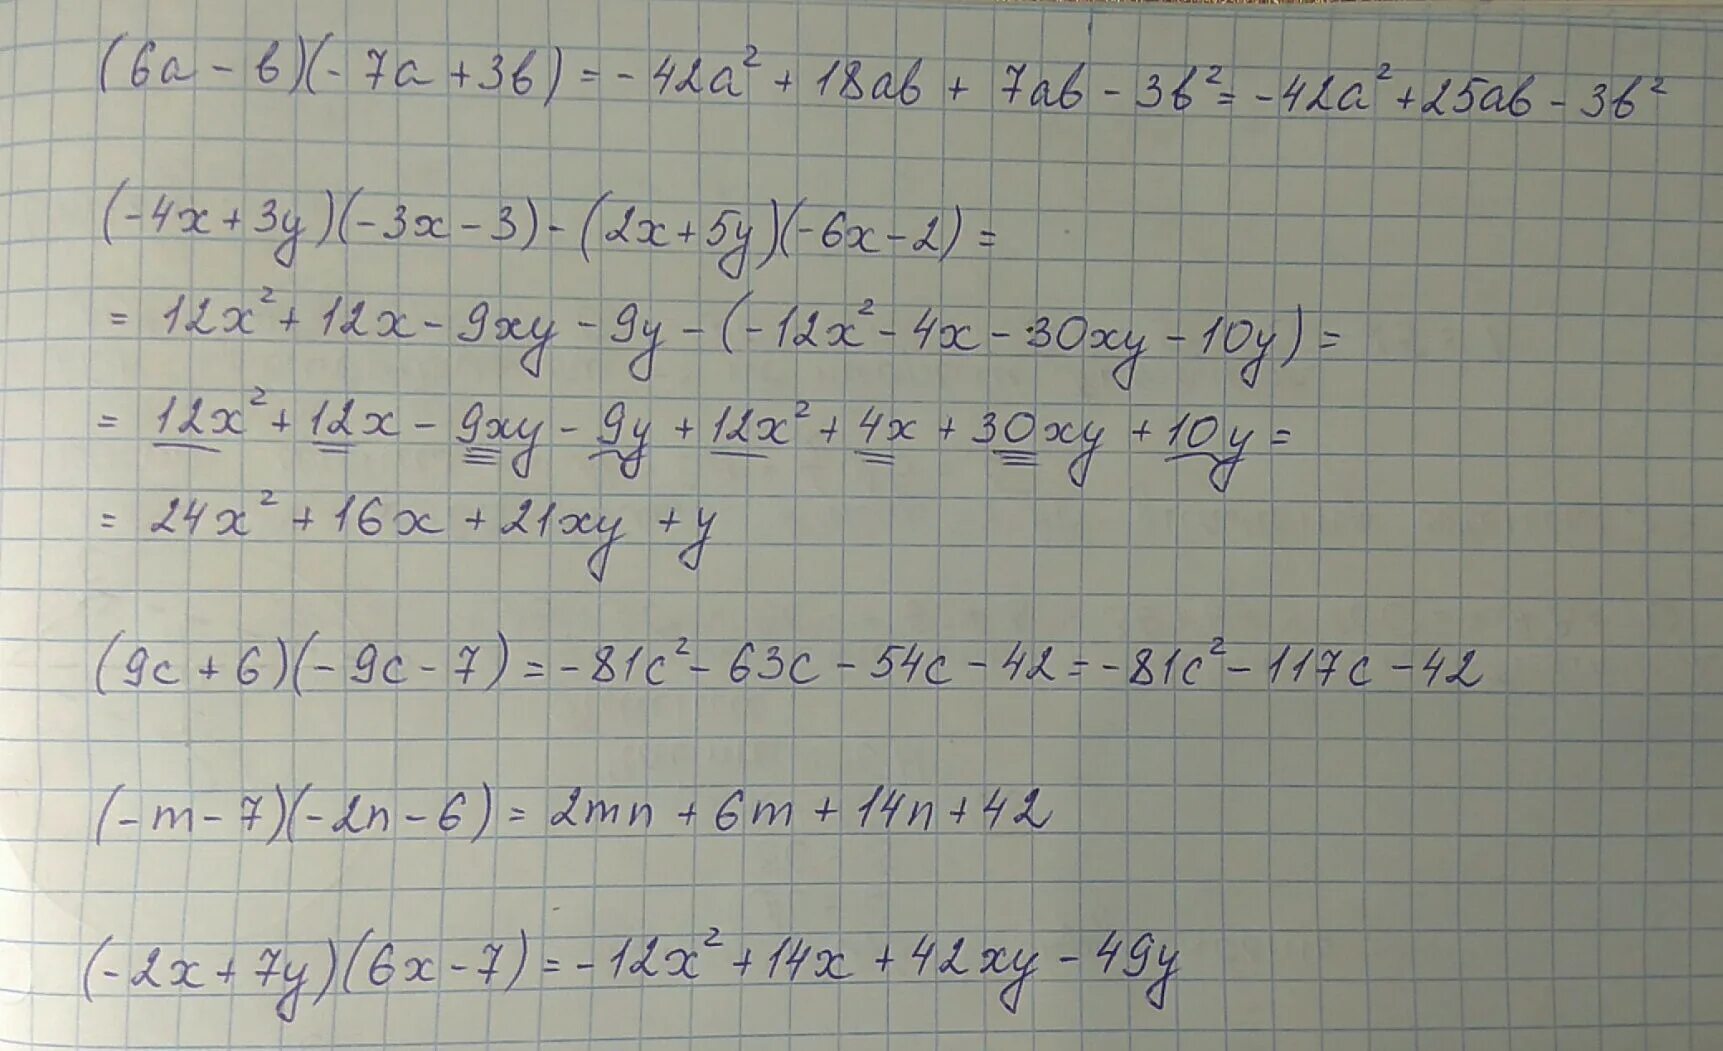 (6a - b)(-7a + 3b) = -42a² + 18ab + 7ab - 3b² = -42a² + 25ab - 3b²
(-4x + 3y)(-3x - 3) - (2x + 5y)(-6x - 2) =
= 12x² + 12x - 9xy - 9y - (-12x² - 4x - 30xy - 10y) =
= 12x² + 12x - 9xy - 9y + 12x² + 4x + 30xy + 10y =
= 24x² + 16x + 21xy + y
(9c + 6)(-9c - 7) = -81c² - 63c - 54c - 42 = -81c² - 117c - 42
(-m - 7)(-2n - 6) = 2mn + 6m + 14n + 42
(-2x + 7y)(6x - 7) = -12x² + 14x + 42xy - 49y